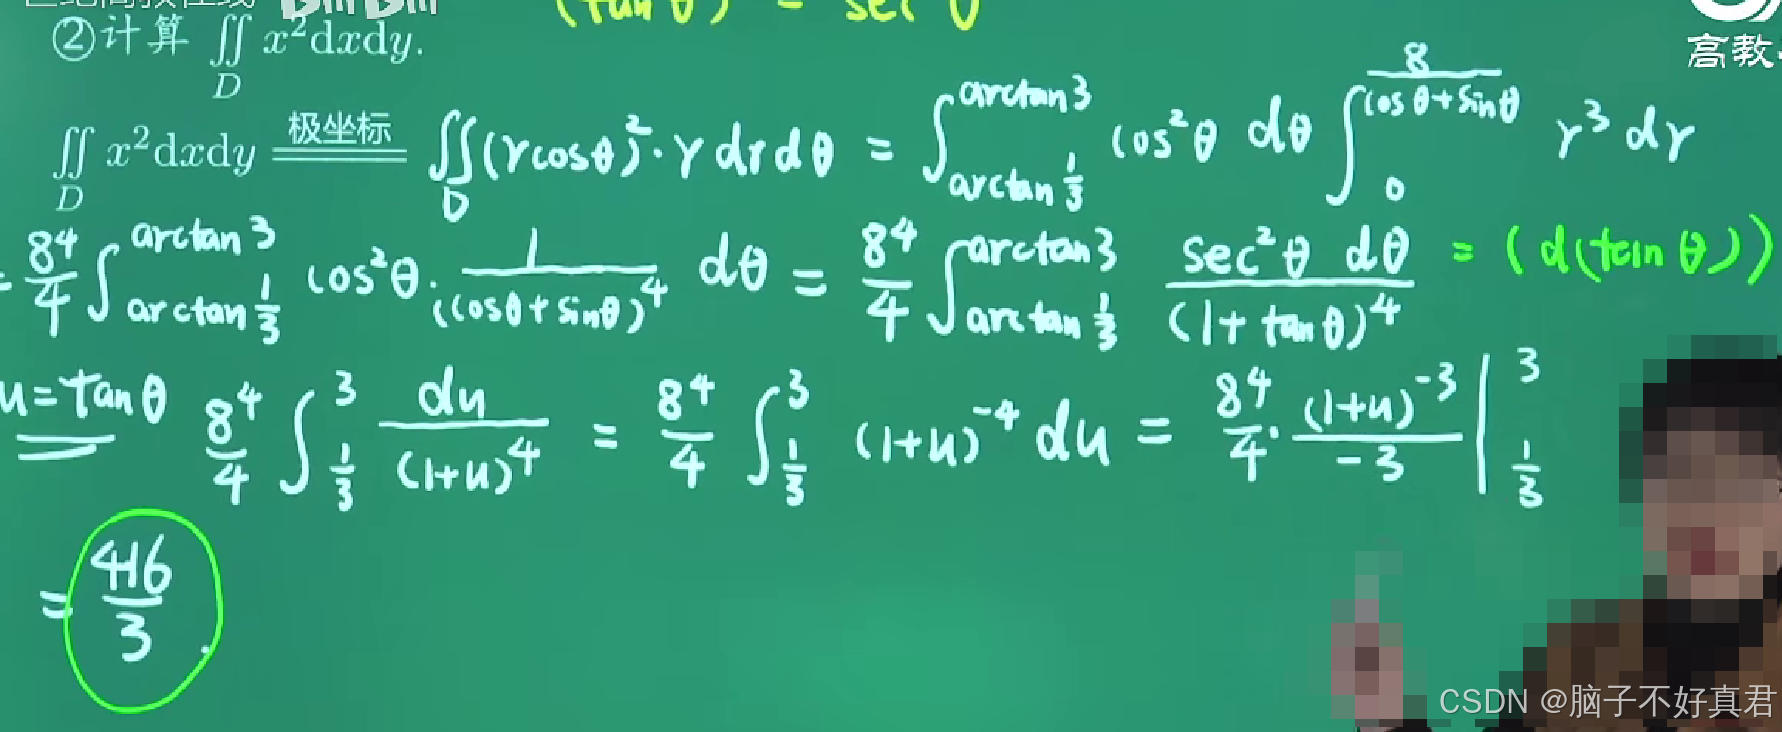 (tan θ) = sec θ
②计算 ∬_D x²dxdy.
高教
∬_D x²dxdy 极坐标 ∬_D (rcosθ)²·r dr dθ = ∫_{arctan 1/3}^{arctan 3} cos²θ dθ ∫_0^{8/(cosθ+sinθ)} r³ dr
= 8⁴/4 ∫_{arctan 1/3}^{arctan 3} cos²θ · 1/(cosθ+sinθ)⁴ dθ = 8⁴/4 ∫_{arctan 1/3}^{arctan 3} sec²θ dθ/(1+tanθ)⁴ = (d(tanθ))
u=tanθ 8⁴/4 ∫_{1/3}^{3} du/(1+u)⁴ = 8⁴/4 ∫_{1/3}^{3} (1+u)⁻⁴ du = 8⁴/4 · (1+u)⁻³/-3 |_{1/3}^{3}
= 416/3.
CSDN @脑子不好真君